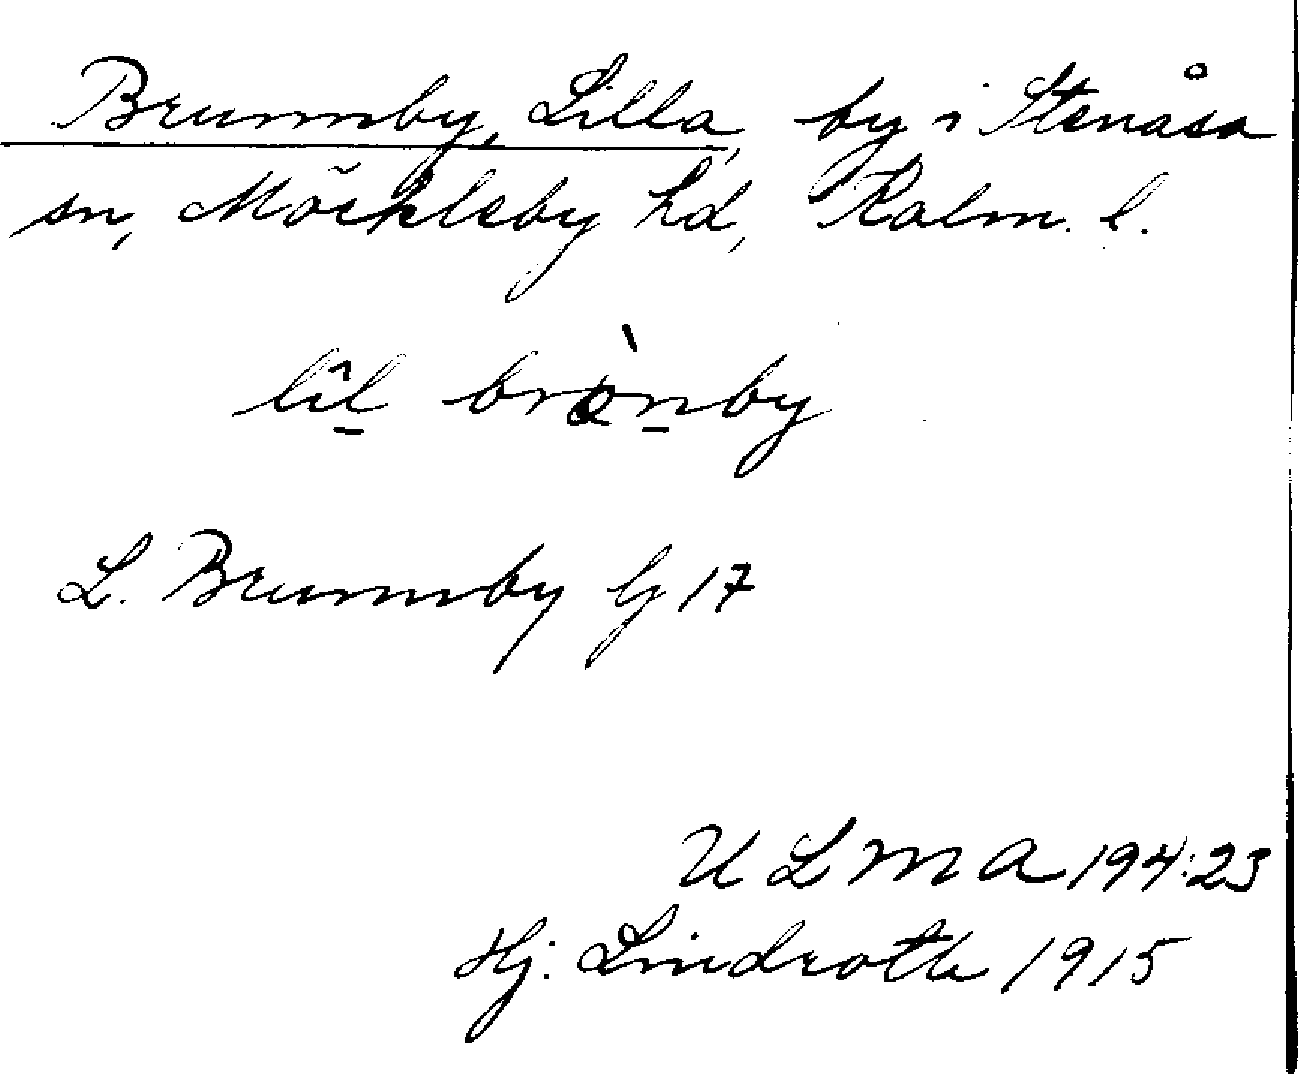 Brunnby, Lilla, by i Stenåsa
sn, Möckleby hd, Kalm. l.
lìl brònby
L. Brunnby G 17
U L M A 194:23
Hj. Lindroth 1915